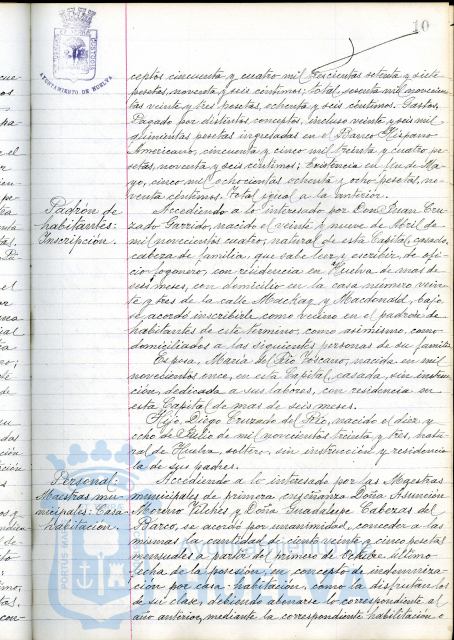 10
AYUNTAMIENTO DE HUELVA
ceptos cincuenta y cuatro mil trescientas setenta y siete
pesetas, noventa y seis céntimos; total, sesenta mil novecien
tas veinte y tres pesetas, ochenta y seis céntimos. Gastos,
Pagado por distintos conceptos, incluso veinte y seis mil
quinientas pesetas ingresadas en el Banco Hispano
Americano, cincuenta y cinco mil treinta y cuatro pe
setas, noventa y seis céntimos; Existencia en fin de Ma
yo, cinco mil ochocientas ochenta y ocho pesetas, no
venta céntimos. Total igual a la anterior.
Padrón de
habitantes:
Inscripción.
Accediendo a lo interesado por Don Juan Cru
zado Garrido, nacido el veinte y nueve de Abril de
mil novecientos cuatro, natural de esta Capital, casado,
cabeza de familia, que sabe leer y escribir, de ofi
cio fogonero, con residencia en Huelva de mas de
seis meses, con domicilio en la casa número vein
te y tres de la calle Mackay y Macdonald, bajo,
se acordó inscribirle como vecino en el padrón de
habitantes de este término; como asimismo, como
domiciliados a las siguientes personas de su familia
Esposa, Maria del Río Toscano, nacida en mil
novecientos once, en esta Capital, casada, sin instruc
ción, dedicada a sus labores, con residencia en
esta Capital de mas de seis meses.
Hijo, Diego Cruzado del Río, nacido el diez y
ocho de Julio de mil novecientos treinta y tres, natu
ral de Huelva, soltero, sin instrucción y residencia
la de sus padres.
Personal:
Maestras mu
nicipales: Casa
habitación.
Accediendo a lo interesado por las Maestras
municipales de primera enseñanza Doña Asunción
Moreno Vilches y Doña Guadalupe Caberas del
Barco, se acordó por unanimidad, conceder a las
mismas la cantidad de ciento veinte y cinco pesetas
mensuales a partir del primero de Octubre último
fecha de la posesión, en concepto de indemniza
ción por casa-habitación, como la disfrutan las
de su clase, debiendo abonarse lo correspondiente al
año anterior, mediante la correspondiente habilitación o